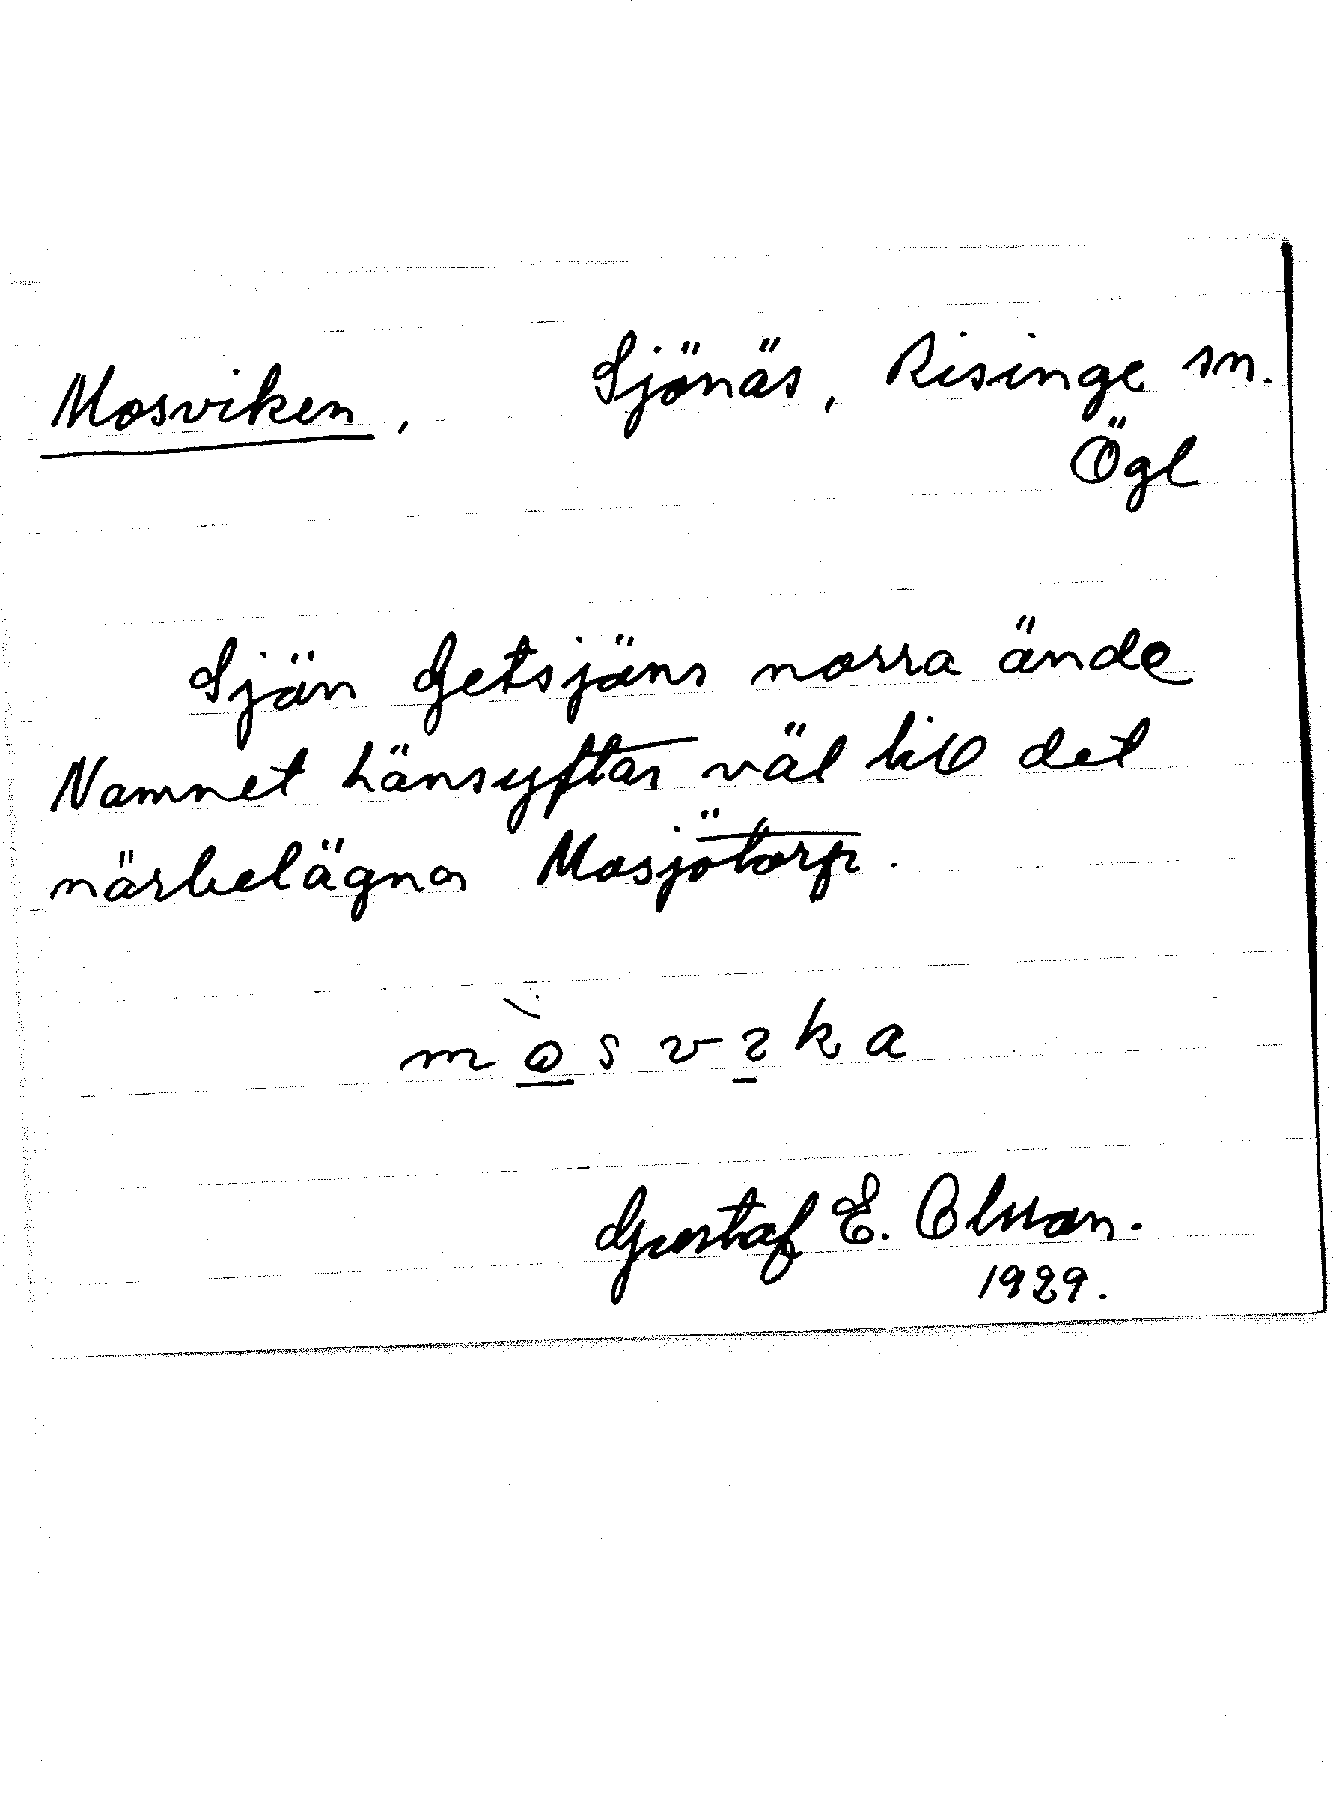 Mosviken, Sjönäs, Risinge sn.
Ögl
Sjön Getsjöns norra ände
Namnet hänsyftar väl till det
närbelägna Mosjötorp.
mòsvıka
Gustaf E. Olsson.
1929.